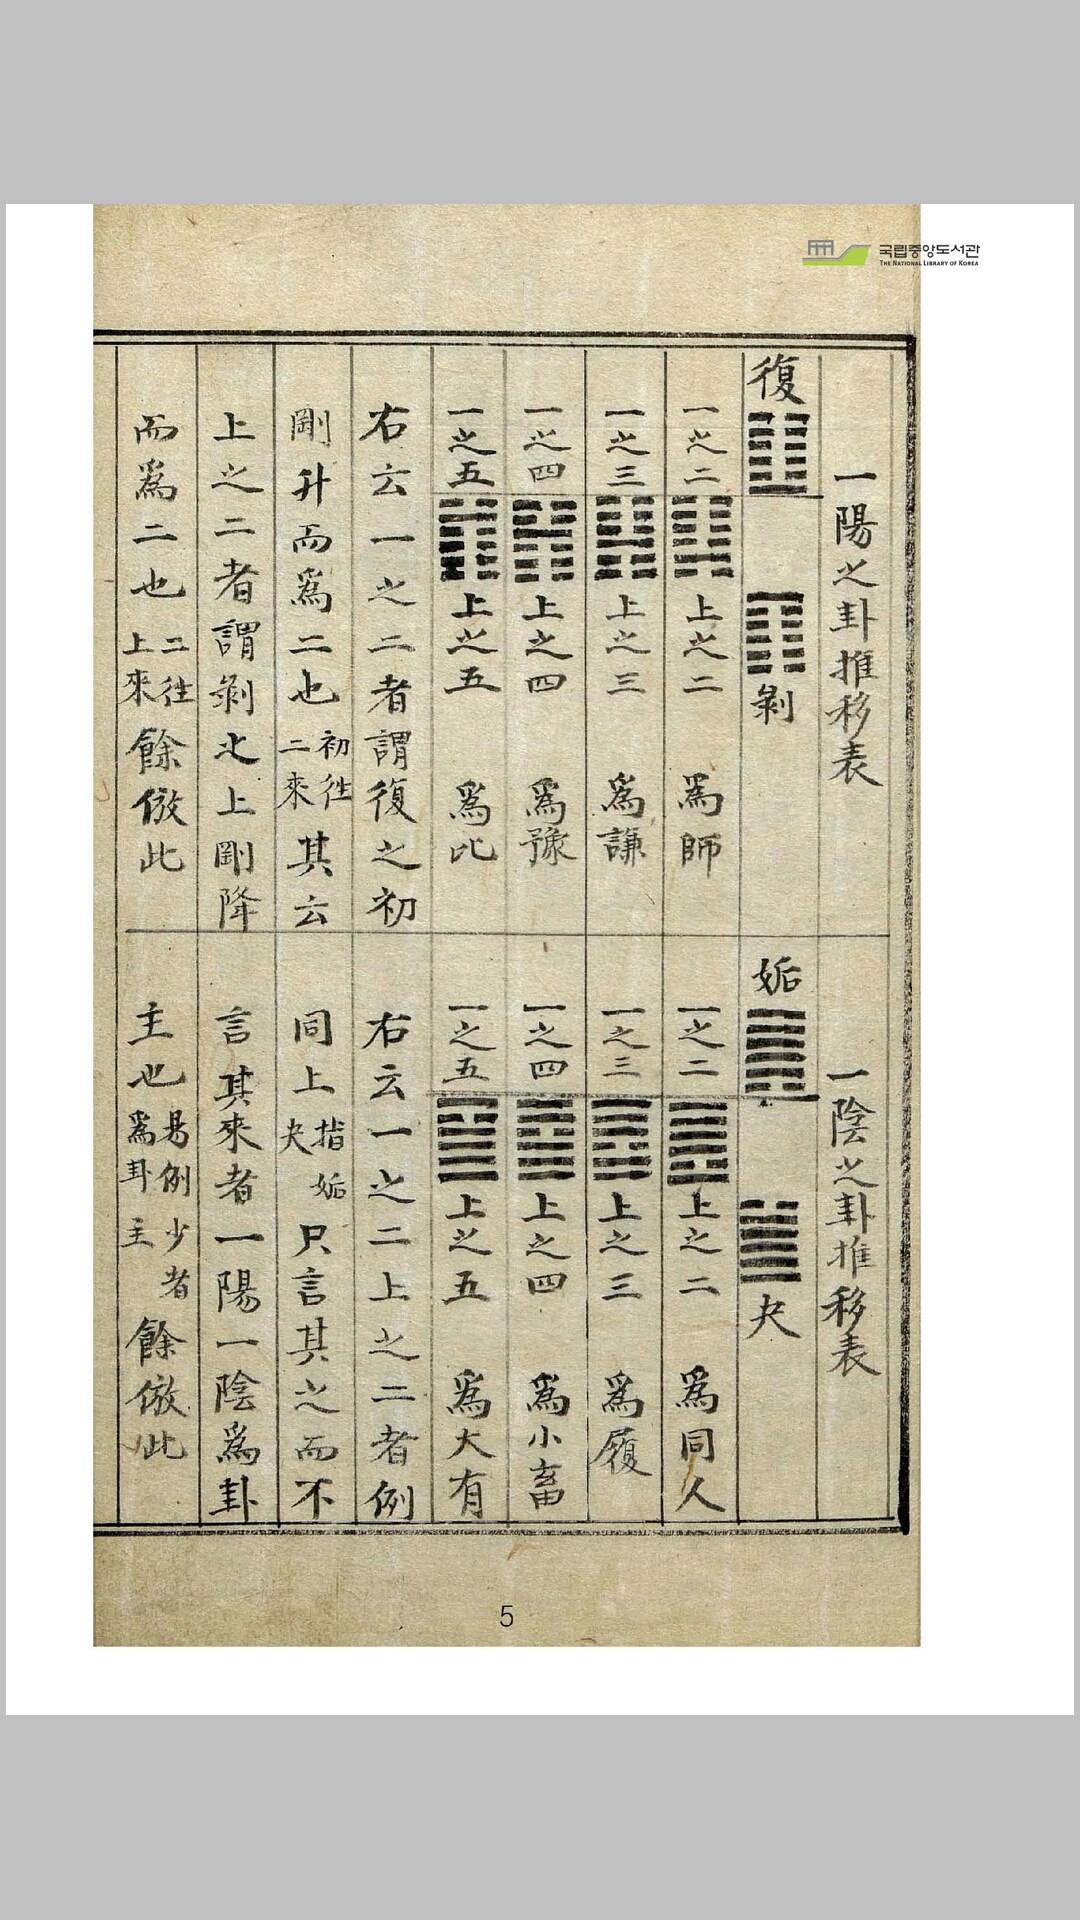 국립중앙도서관
THE NATIONAL LIBRARY OF KOREA
一陽之卦推移表
復 剝
一之二 上之二 爲師
一之三 上之三 爲謙
一之四 上之四 爲豫
一之五 上之五 爲比
右云一之二者謂復之初
剛升而爲二也初往二來其云
上之二者謂剝之上剛降
而爲二也二往上來餘倣此
一陰之卦推移表
姤 夬
一之二 上之二 爲同人
一之三 上之三 爲履
一之四 上之四 爲小畜
一之五 上之五 爲大有
右云一之二上之二者例
同上指姤夬只言其之而不
言其來者一陽一陰爲卦
主也易例少者爲卦主餘倣此
5